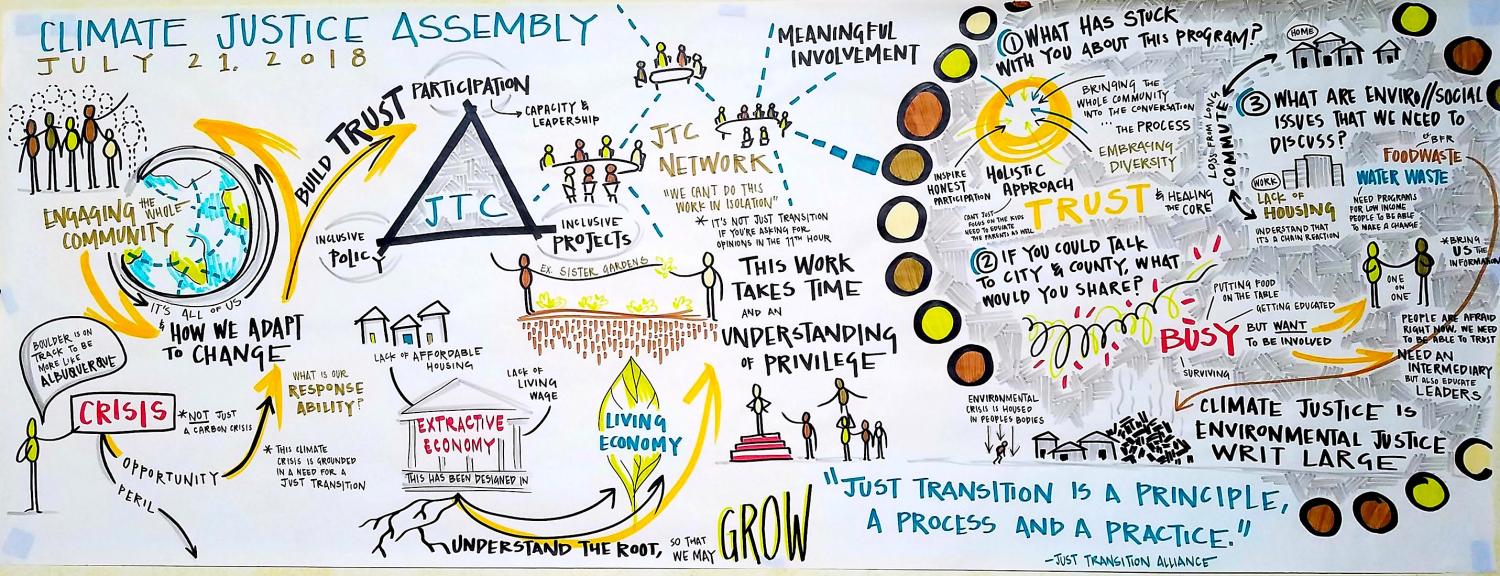 CLIMATE JUSTICE ASSEMBLY
JULY 21, 2018
ENGAGING THE WHOLE
COMMUNITY
IT'S ALL OF US
& HOW WE ADAPT
TO CHANGE
BOULDER IS ON
TRACK TO BE
MORE LIKE
ALBUQUERQUE
CRISIS
*NOT JUST
A CARBON CRISIS
OPPORTUNITY
PERIL
WHAT IS OUR
RESPONSE
ABILITY?
*THIS CLIMATE
CRISIS IS GROUNDED
IN A NEED FOR A
JUST TRANSITION
BUILD TRUST
PARTICIPATION
CAPACITY &
LEADERSHIP
JTC
INCLUSIVE
POLICY
INCLUSIVE
PROJECTS
EX. SISTER GARDENS
LACK OF AFFORDABLE
HOUSING
LACK OF
LIVING
WAGE
EXTRACTIVE
ECONOMY
THIS HAS BEEN DESIGNED IN
LIVING
ECONOMY
UNDERSTAND THE ROOT, SO THAT
WE MAY GROW
MEANINGFUL
INVOLVEMENT
JTC
NETWORK
"WE CAN'T DO THIS
WORK IN ISOLATION"
*IT'S NOT JUST TRANSITION
IF YOU'RE ASKING FOR
OPINIONS IN THE 11TH HOUR
THIS WORK
TAKES TIME
AND AN
UNDERSTANDING
OF PRIVILEGE
"JUST TRANSITION IS A PRINCIPLE,
A PROCESS AND A PRACTICE."
-JUST TRANSITION ALLIANCE
1 WHAT HAS STUCK
WITH YOU ABOUT THIS PROGRAM?
BRINGING THE
WHOLE COMMUNITY
INTO THE CONVERSATION
... THE PROCESS
EMBRACING
DIVERSITY
INSPIRE
HONEST
PARTICIPATION
HOLISTIC
APPROACH
CAN'T JUST
FOCUS ON THE KIDS
NEED TO EDUCATE
THE PARENTS AS WELL
TRUST & HEALING
THE CORE
2 IF YOU COULD TALK
TO CITY & COUNTY, WHAT
WOULD YOU SHARE?
BUSY
PUTTING FOOD
ON THE TABLE
GETTING EDUCATED
BUT WANT
TO BE INVOLVED
SURVIVING
ENVIRONMENTAL
CRISIS IS HOUSED
IN PEOPLES BODIES
HOME
LOSS FROM LONG
COMMUTE
WORK
3 WHAT ARE ENVIRO//SOCIAL
ISSUES THAT WE NEED TO
DISCUSS?
LACK OF
HOUSING
UNDERSTAND THAT
IT'S A CHAIN REACTION
BFR
FOODWASTE
WATER WASTE
NEED PROGRAMS
FOR LOW INCOME
PEOPLE TO BE ABLE
TO MAKE A CHANGE
*BRING
US THE
INFORMATION
ONE
ON
ONE
PEOPLE ARE AFRAID
RIGHT NOW. WE NEED
TO BE ABLE TO TRUST
NEED AN
INTERMEDIARY
BUT ALSO EDUCATE
LEADERS
CLIMATE JUSTICE IS
ENVIRONMENTAL JUSTICE
WRIT LARGE